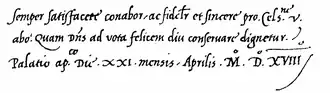 semper satisfacere conabor. ac fidelr̃ et sincere pro. Cels.ne v.
abo. Quam Dñs ad vota felicem diu conseruare dignetur.
Palatio ap.co Die. XXI. mensis. Aprilis. M.o D.o XVIII